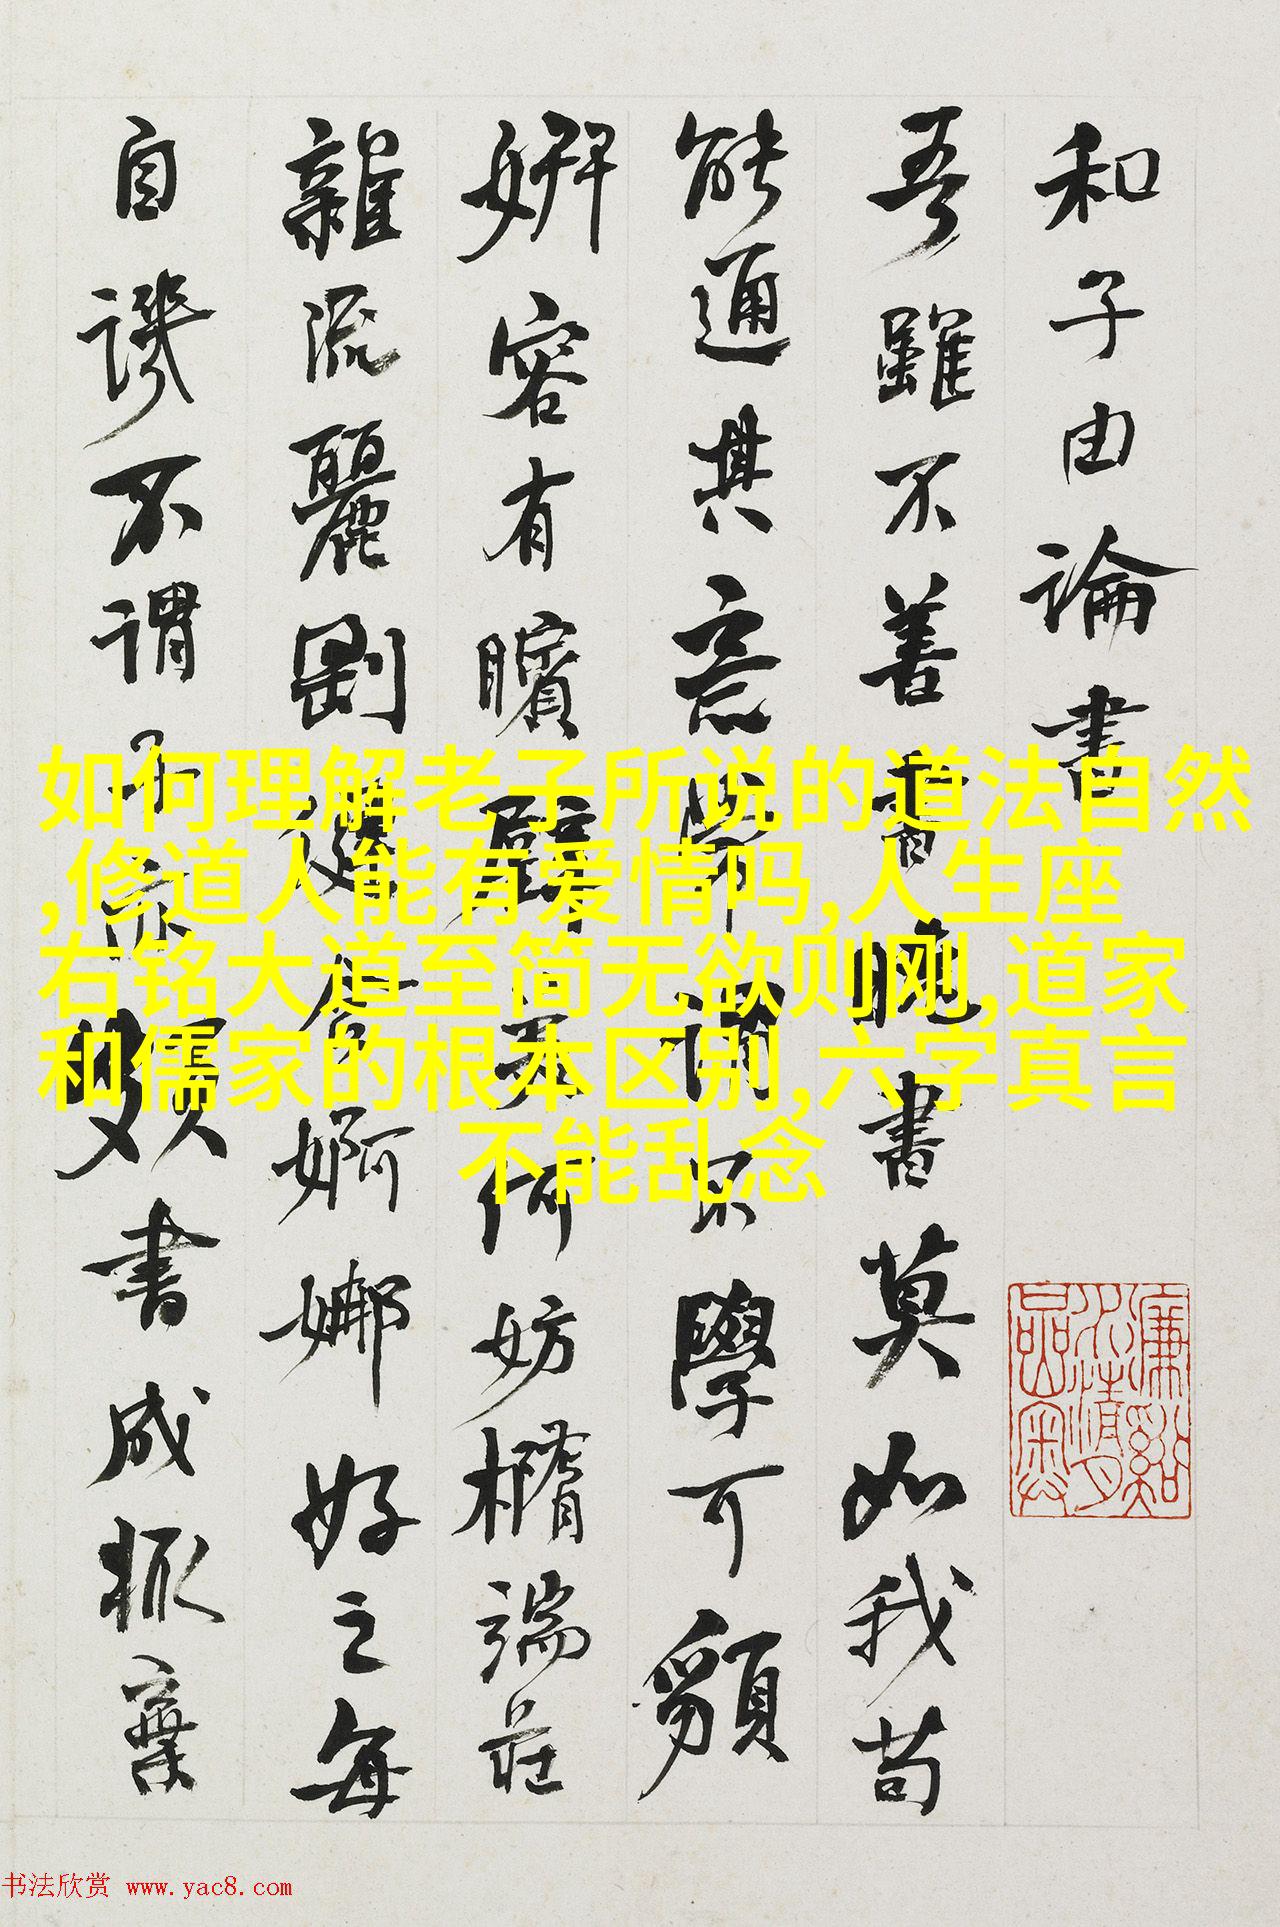 和子由論書
吾雖不善書曉書莫如我苟
能通其意常謂不學可䫉
姸容有矉璧美何妨橢端莊
雜流麗剛健含婀娜好之每
自譏不謂子亦頗書成輒棄
如何理解老子所说的道法自然
,修道人能有爱情吗,人生座
右铭大道至简无欲则刚,道家
和儒家的根本区别,六字真言
不能乱念
书法欣赏 www.yac8.com